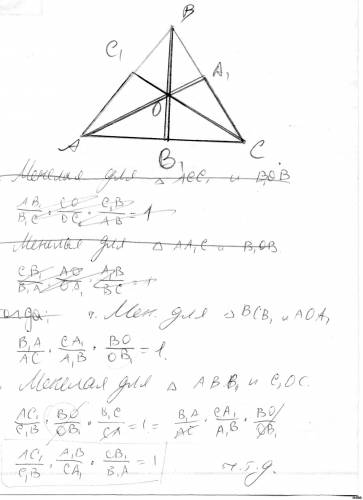 B
C₁
A₁
O
A
B₁
C
Менелая для △ ACC₁ и B₁OB
AB₁/B₁C · CO/OC₁ · C₁B/AB = 1
Менелая для △ AA₁C и B₁OB
CB₁/B₁A · AO/OA₁ · A₁B/BC = 1
т. Мен. для △ BCB₁ и AOA₁
B₁A/AC · CA₁/A₁B · BO/OB₁ = 1.
Менелая для △ ABB₁ и C₁OC.
AC₁/C₁B · BO/OB₁ · B₁C/CA = 1 = B₁A/AC · CA₁/A₁B · BO/OB₁
AC₁/C₁B · A₁B/CA₁ · CB₁/B₁A = 1
ч.т.д.